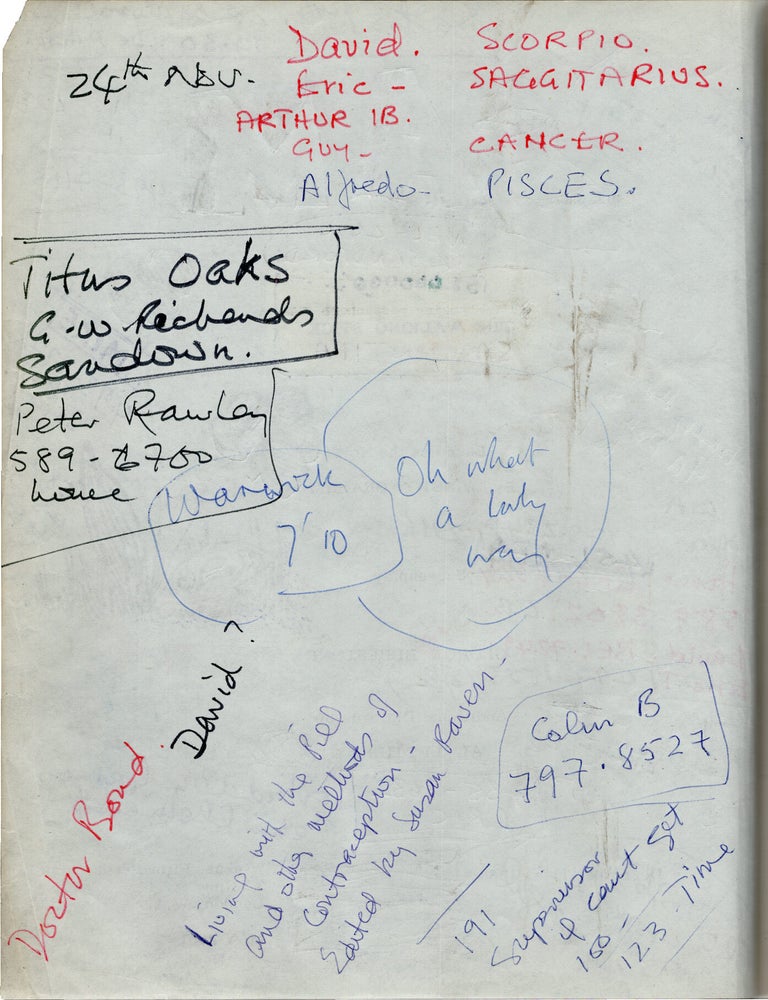 24th NOV.
David. SCORPIO.
Eric - SAGGITARIUS.
ARTHUR IB.
GUY- CANCER.
Alfredo- PISCES.
Titus Oaks
G.W. Richards
Sandown.
Peter Rawley
589-6700
house
Warwick
7'10
Oh what
a lovely
war
David?
Doctor Bond.
Living with the Pill
and other methods of
Contraception -
Edited by Susan Raven -
Colin B
797.8527
191
Supervisor
if cant get
100-
123 - Time